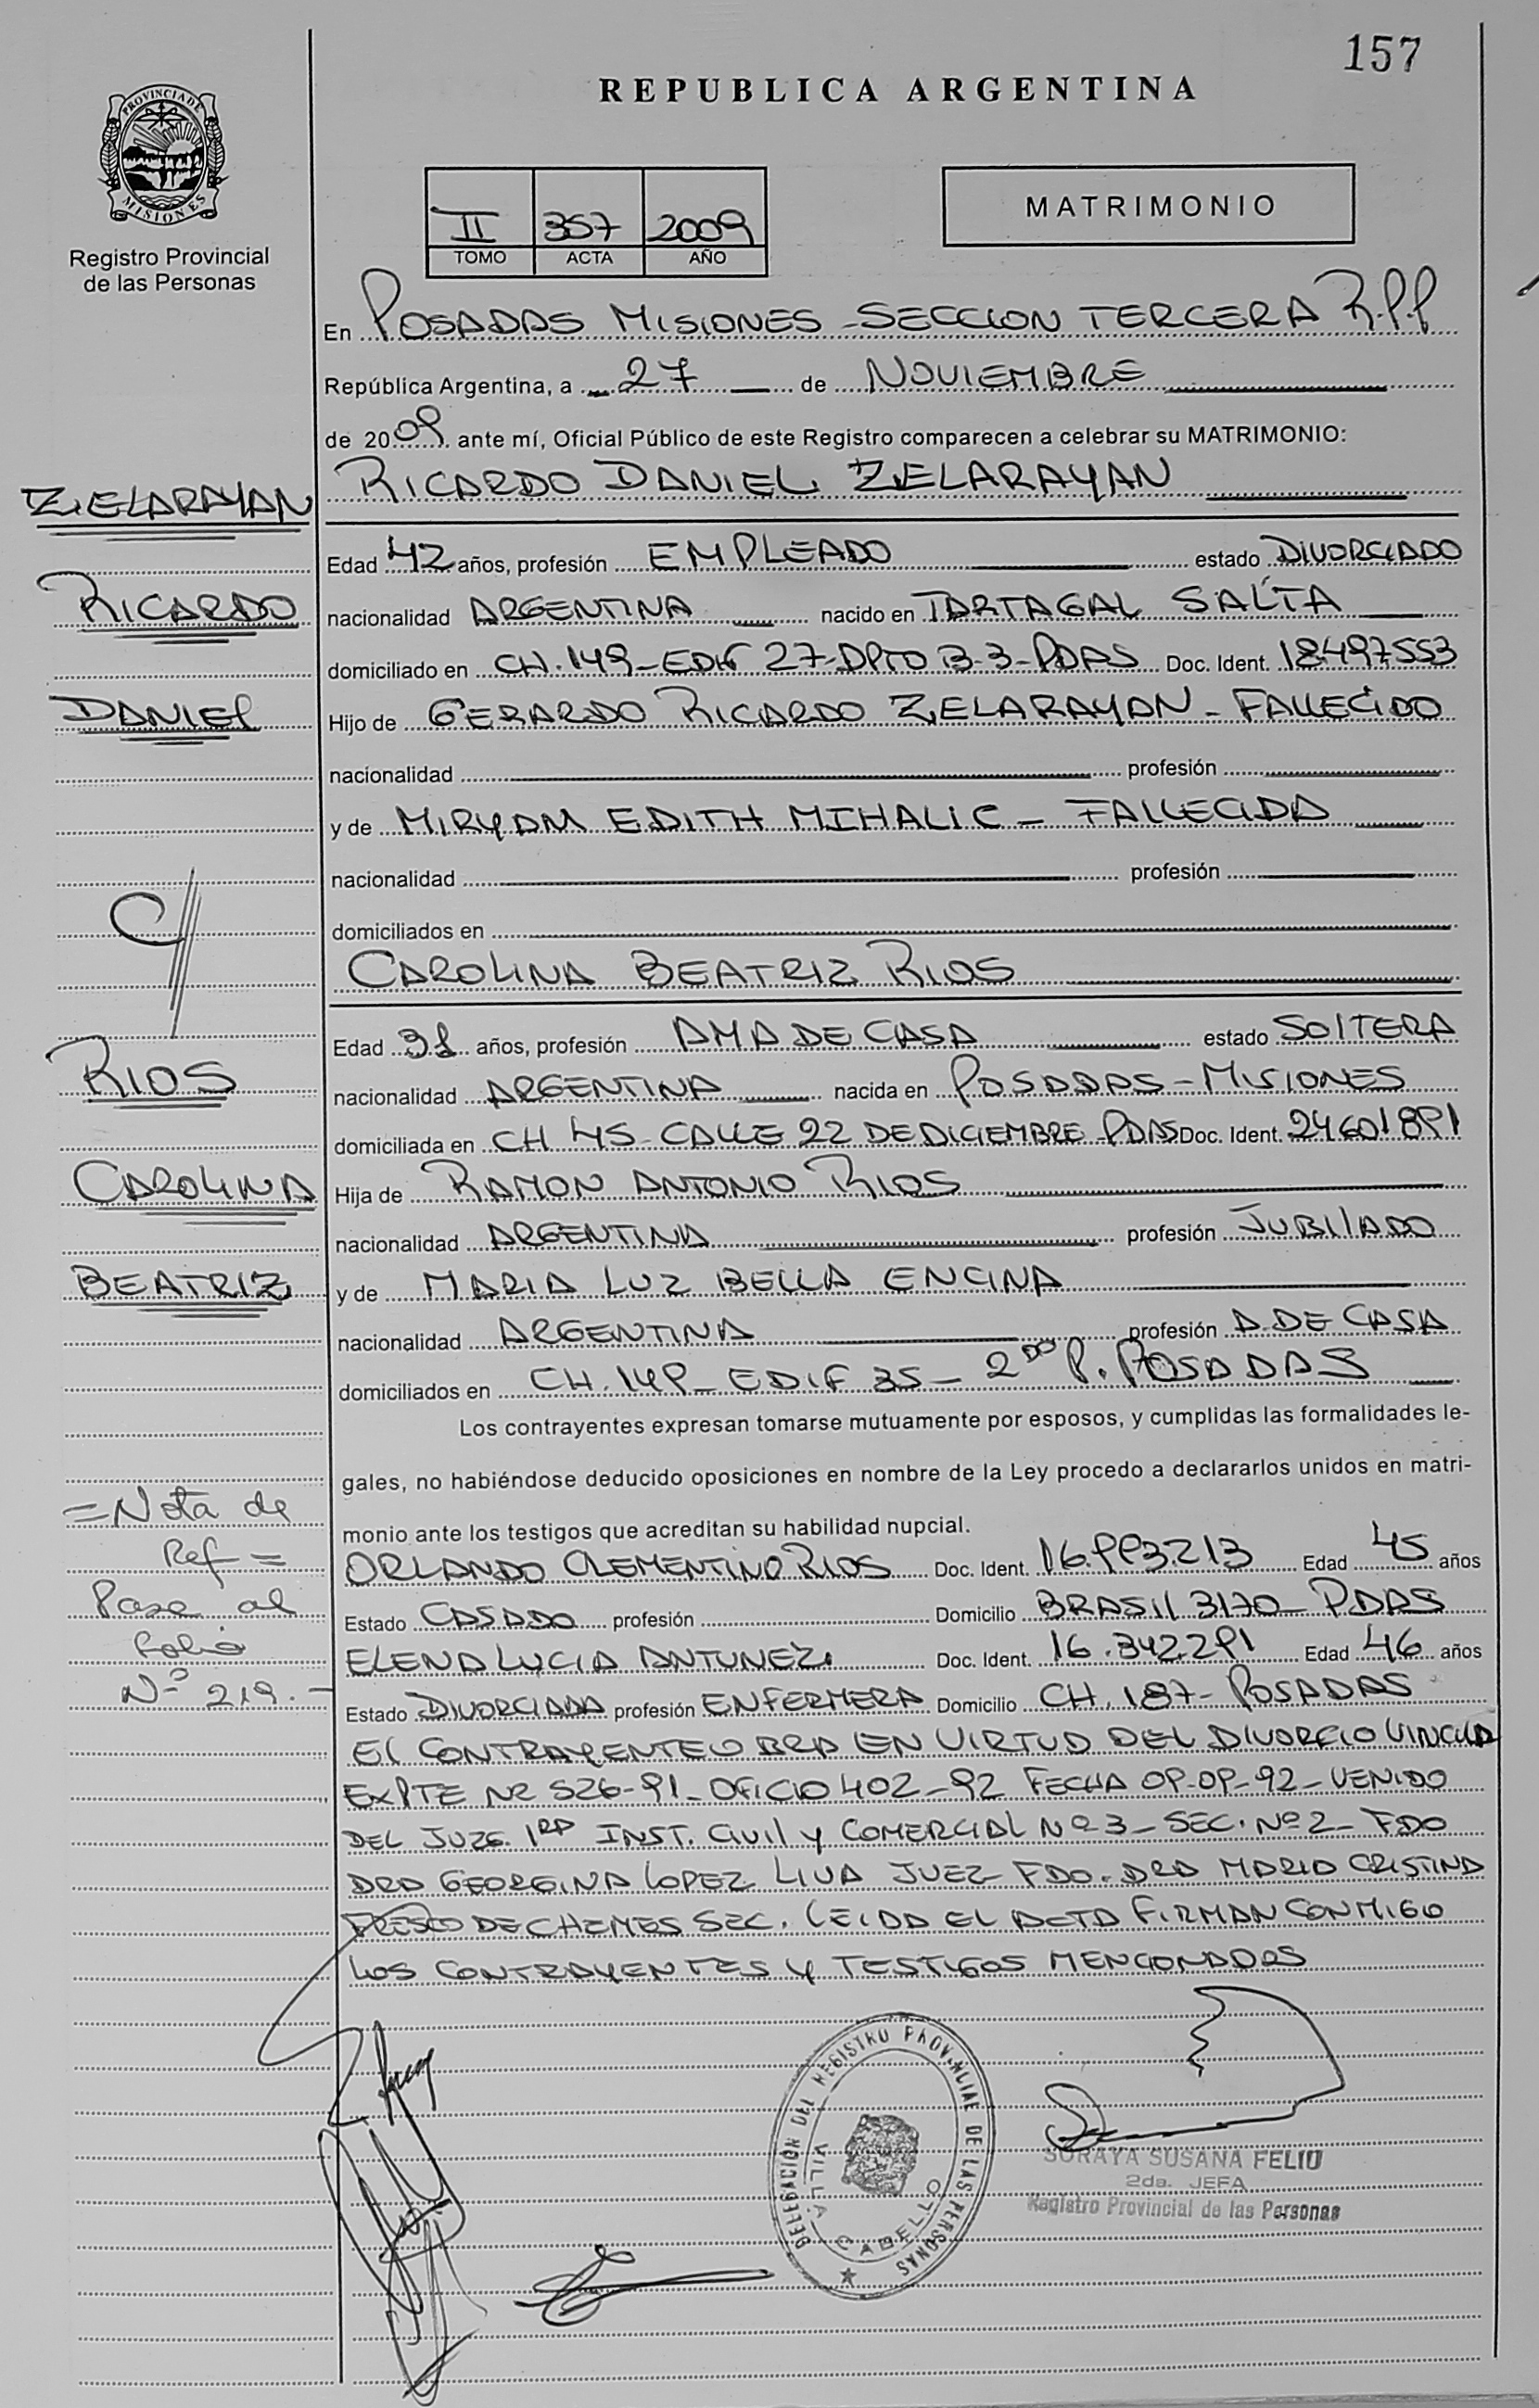 157
REPUBLICA ARGENTINA
PROVINCIA DE
MISIONES
Registro Provincial
de las Personas
II 357 2009
TOMO ACTA AÑO
MATRIMONIO
En POSADAS MISIONES - SECCION TERCERA R.P.P
República Argentina, a 27 de NOVIEMBRE
de 2009 ante mí, Oficial Público de este Registro comparecen a celebrar su MATRIMONIO:
RICARDO DANIEL ZELARAYAN
Edad 42 años, profesión EMPLEADO estado DIVORCIADO
nacionalidad ARGENTINA nacido en TARTAGAL SALTA
domiciliado en CH. 149 - EDIF 27 - DPTO B-3 - PDAS Doc. Ident. 18497553
Hijo de GERARDO RICARDO ZELARAYAN - FALLECIDO
nacionalidad profesión
y de MIRYAM EDITH MIHALIC - FALLECIDA
nacionalidad profesión
domiciliados en
CAROLINA BEATRIZ RIOS
Edad años, profesión AMA DE CASA estado SOLTERA
nacionalidad ARGENTINA nacida en POSADAS - MISIONES
domiciliada en CH 45 - CALLE 22 DE DICIEMBRE - PDAS Doc. Ident. 24601891
Hija de RAMON ANTONIO RIOS
nacionalidad ARGENTINA profesión JUBILADO
y de MARIA LUZ BELLA ENCINA
nacionalidad ARGENTINA profesión A. DE CASA
domiciliados en CH. 149 - EDIF 35 - 2DO P. POSADAS
Los contrayentes expresan tomarse mutuamente por esposos, y cumplidas las formalidades le-
gales, no habiéndose deducido oposiciones en nombre de la Ley procedo a declararlos unidos en matri-
monio ante los testigos que acreditan su habilidad nupcial.
ORLANDO CLEMENTINO RIOS Doc. Ident. 16.993.213 Edad 45 años
Estado CASADO profesión Domicilio BRASIL 3170 - PDAS
ELENA LUCIA ANTUNEZ Doc. Ident. 16.342.291 Edad 46 años
Estado DIVORCIADA profesión ENFERMERA Domicilio CH. 187 - POSADAS
EL CONTRAYENTE OBRA EN VIRTUD DEL DIVORCIO VINCULA
EXPTE Nº 526-91 - OFICIO 402-92 FECHA 09-09-92 - VENIDO
DEL JUZG. 1RA INST. CIVIL Y COMERCIAL Nº 3 - SEC. Nº 2 - FDO
DRA GEORGINA LOPEZ LIVA JUEZ - FDO. DRA MARIA CRISTINA
DE CHEMES SEC. LEIDA EL ACTA FIRMAN CONMIGO
LOS CONTRAYENTES Y TESTIGOS MENCIONADOS
ZELARAYAN
RICARDO
DANIEL
C/
RIOS
CAROLINA
BEATRIZ
= Nota de
Ref =
Pase al
folio
Nº 219. -
DELEGACIÓN DEL REGISTRO PROVINCIAL DE LAS PERSONAS
VILLA CABELLO
SORAYA SUSANA FELIU
2da. JEFA
Registro Provincial de las Personas